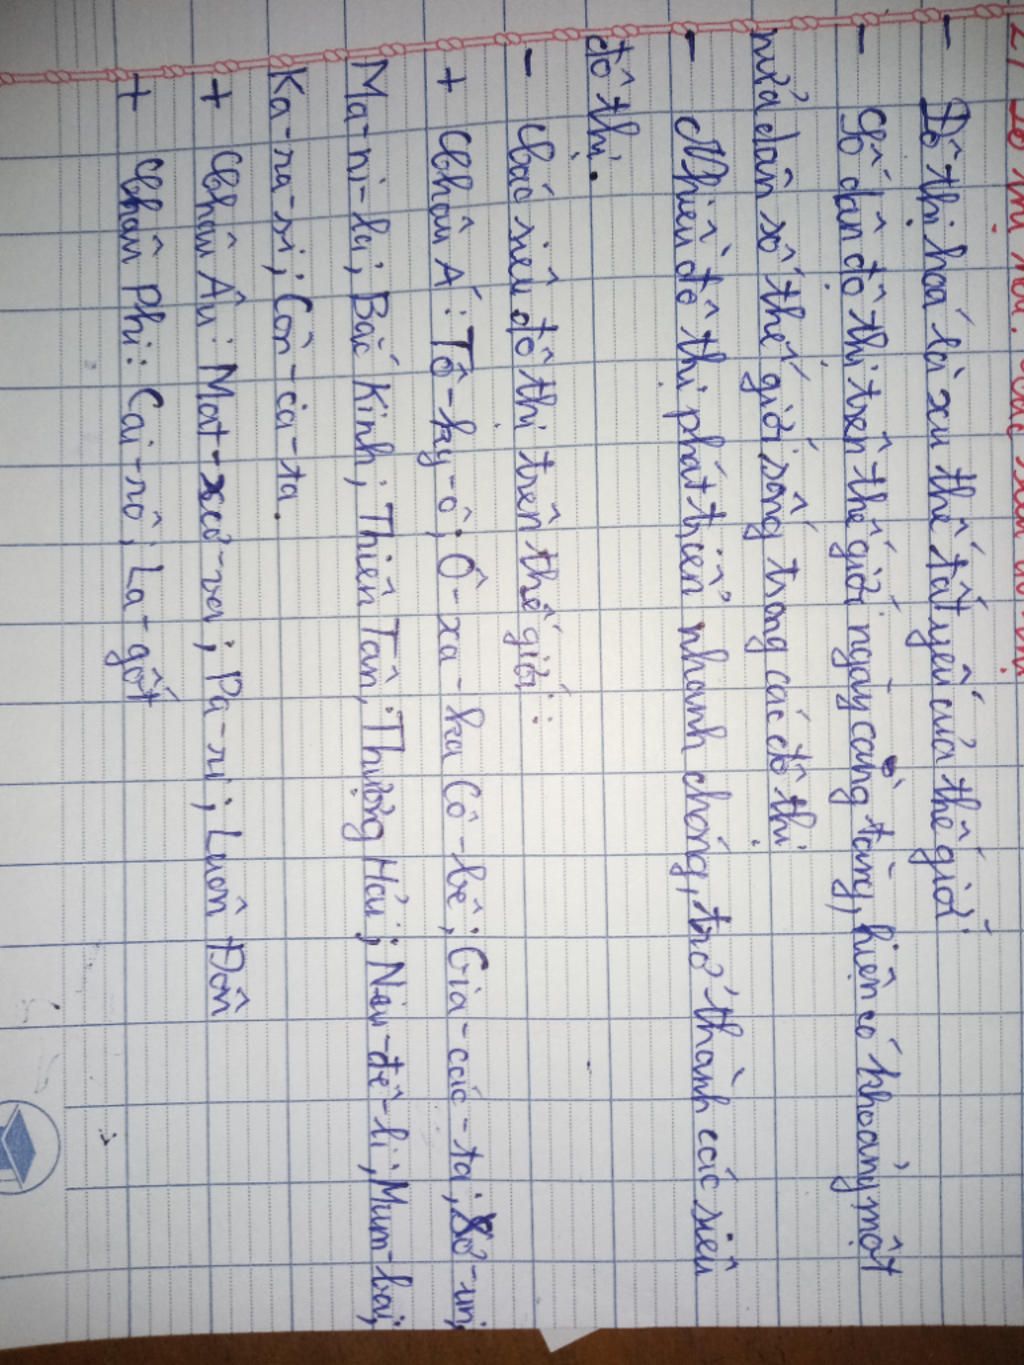 2, Đô thị hoá. Các siêu đô thị
- Đô thị hoá là xu thế tất yếu của thế giới.
- Số dân đô thị trên thế giới ngày càng tăng, hiện có khoảng một
nửa dân số thế giới sống trong các đô thị
- Nhiều đô thị phát triển nhanh chóng, trở thành các siêu
đô thị.
- Các siêu đô thị trên thế giới:
+ Châu Á: Tô-ky-ô; Ô-xa-ka Cô-bê; Gia-các-ta; Xơ-un;
Ma-ni-la; Bắc Kinh; Thiên Tân; Thượng Hải; Niu-đê-li; Mum-bai;
Ka-ra-si; Côn-ca-ta.
+ Châu Âu: Mat-xcơ-va; Pa-ri; Luân Đôn
+ Châu Phi: Cai-rô; La-gốt